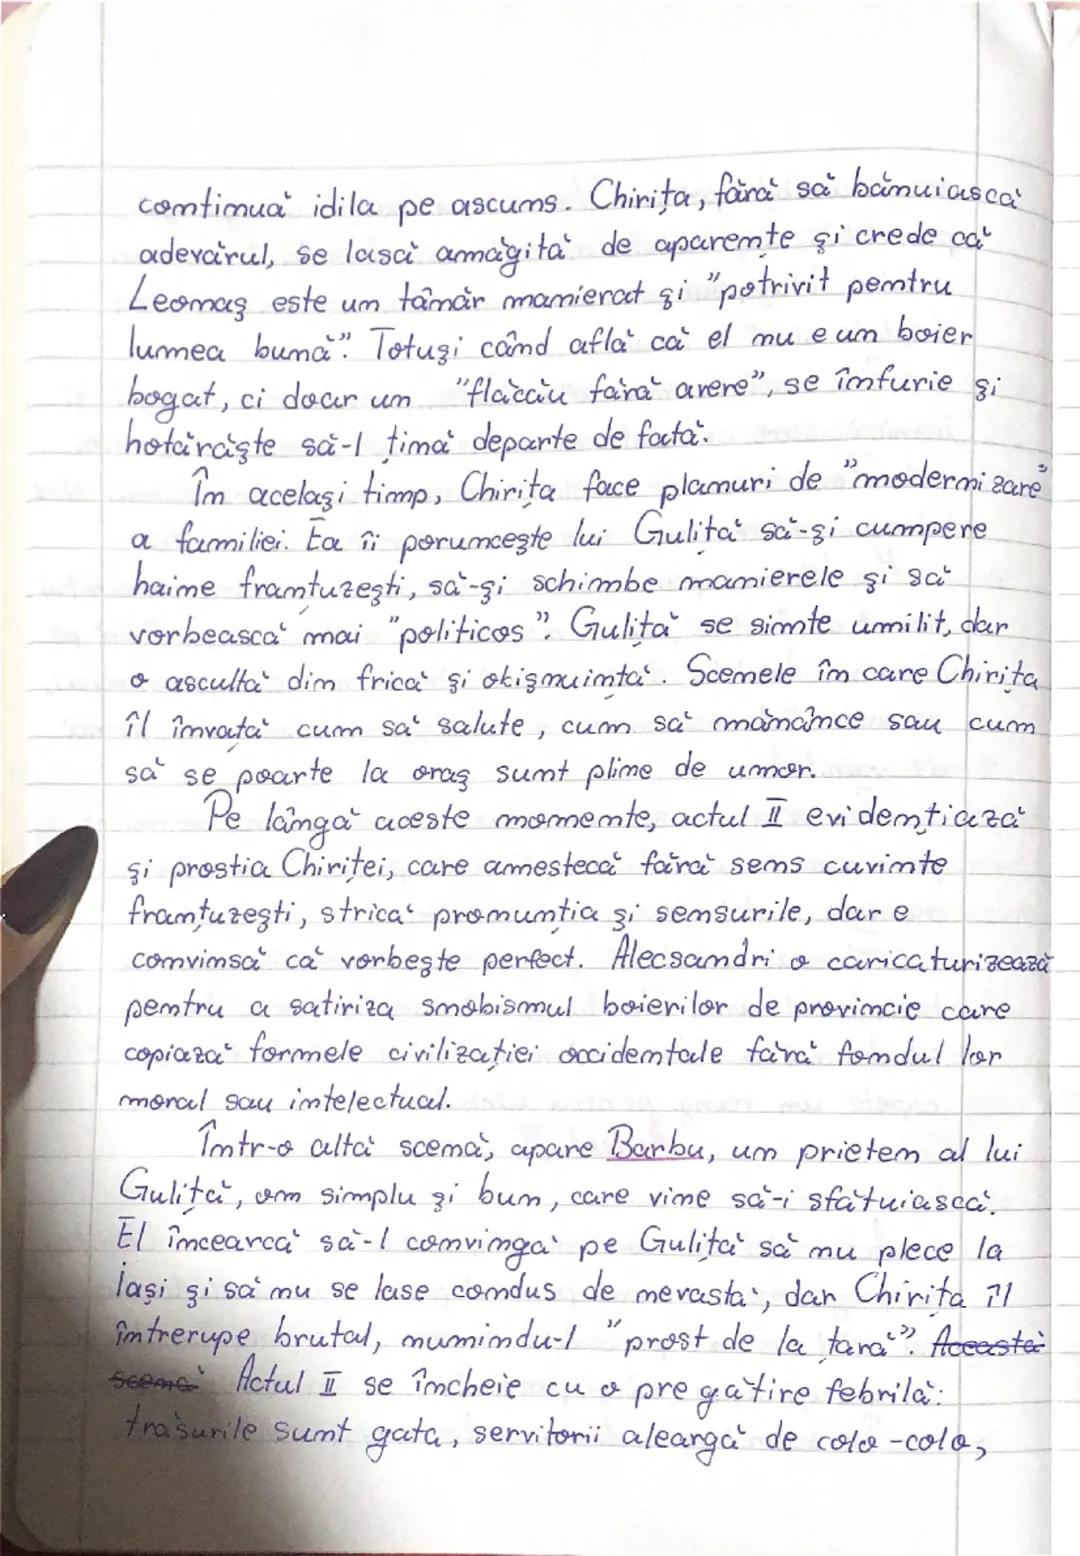 continuă idila pe ascuns. Chirița, fără să bănuiască
adevărul, se lasă amăgită de aparențe și crede că
Leonaș este un tânăr manierat și "potrivit pentru
lumea bună". Totuși când află că el nu e un boier
bogat, ci doar un "flăcău fără avere", se înfurie și
hotărăște să-l țină departe de fată.
În același timp, Chirița face planuri de "modernizare"
a familiei. Ea îi poruncește lui Guliță să-și cumpere
haine franțuzești, să-și schimbe manierele și să
vorbească mai "politicos". Guliță se simte umilit, dar
o ascultă din frică și obișnuință. Scenele în care Chirița
îl învață cum să salute, cum să mănânce sau cum
să se poarte la oraș sunt pline de umor.
Pe lângă aceste momente, actul II evidențiază
și prostia Chiriței, care amestecă fără sens cuvinte
franțuzești, strică pronunția și sensurile, dar e
convinsă că vorbește perfect. Alecsandri o caricaturizează
pentru a satiriza snobismul boierilor de provincie care
copiază formele civilizației occidentale fără fondul lor
moral sau intelectual.
Într-o altă scenă, apare Barbu, un prieten al lui
Guliță, om simplu și bun, care vine să-i sfătuiască.
El încearcă să-l convingă pe Guliță să nu plece la
Iași și să nu se lase condus de nevastă, dar Chirița îl
întrerupe brutal, numindu-l "prost de la țară". Această
scenă Actul II se încheie cu o pregătire febrilă:
trăsurile sunt gata, servitorii aleargă de colo-colo,